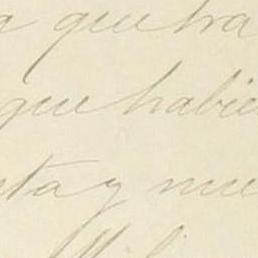 a que tra
que habie
nta y nue